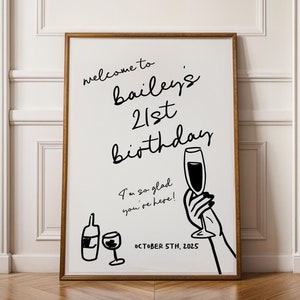 welcome to
bailey's
21st
birthday
I'm so glad
you're here!
OCTOBER 5TH, 2025